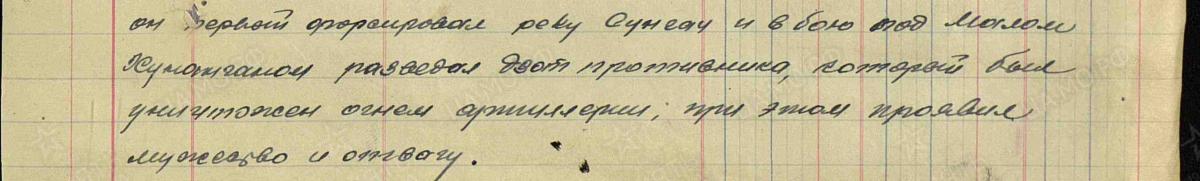 он первый форсировал реку Сунгач и в бою под Малом
Хуножганом разведал Дзот противника, который был
уничтожен огнем артиллерии, при этом проявил
мужество и отвагу.